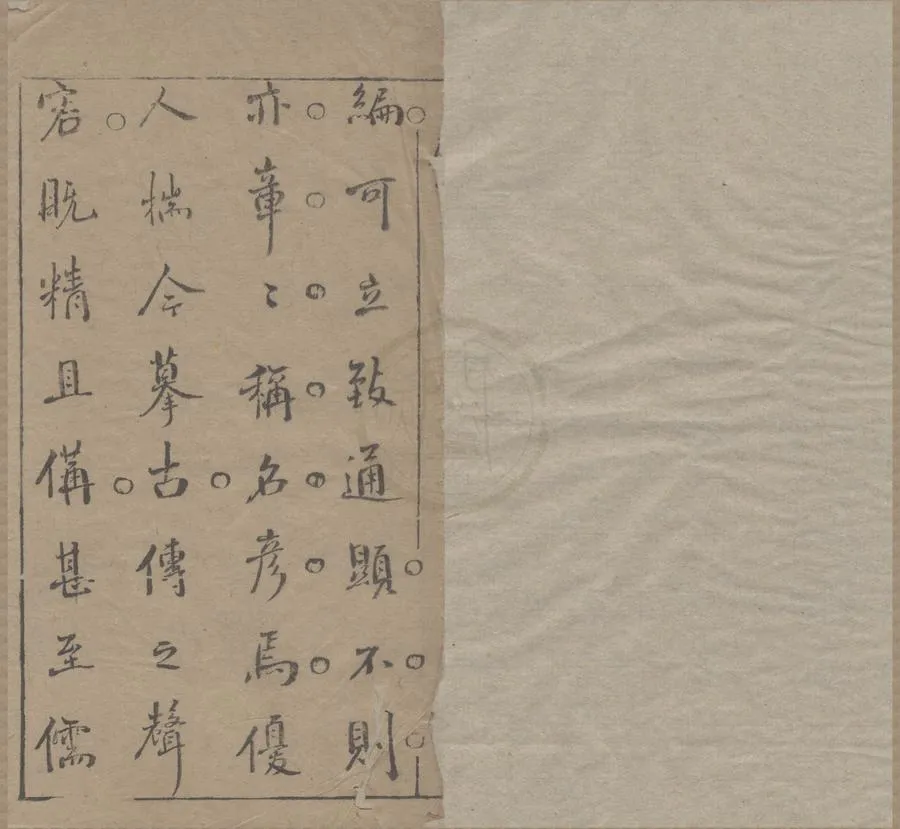 編可立致通顯不則
亦章〻稱名彥焉優
人揣今摹古傳之聲
容既精且備甚至儒